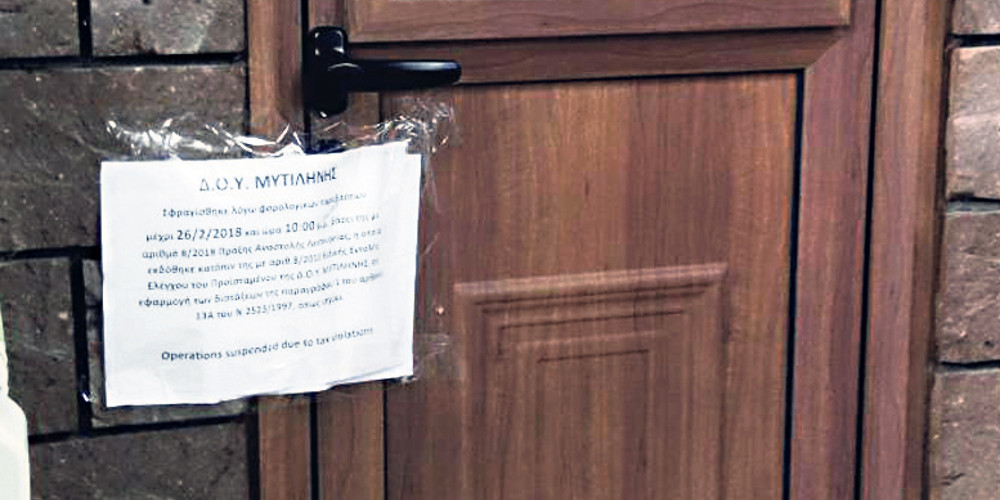 Δ.Ο.Υ. ΜΥΤΙΛΗΝΗΣ
Σφραγίσθηκε λόγω φορολογικών παραβάσεων
μέχρι 26/2/2018 και ώρα 10:00 μ.μ. βάσει της με
αριθμό 8/2018 Πράξης Αναστολής Λειτουργίας, η οποία
εκδόθηκε κατόπιν της με αριθ.8/2018 Ειδικής Εντολής
Ελέγχου του Προϊσταμένου της Δ.Ο.Υ. ΜΥΤΙΛΗΝΗΣ, σε
εφαρμογή των διατάξεων της παραγράφου 1 του άρθρου
13Α του Ν 2523/1997, όπως ισχύει.
Operations suspended due to tax violations